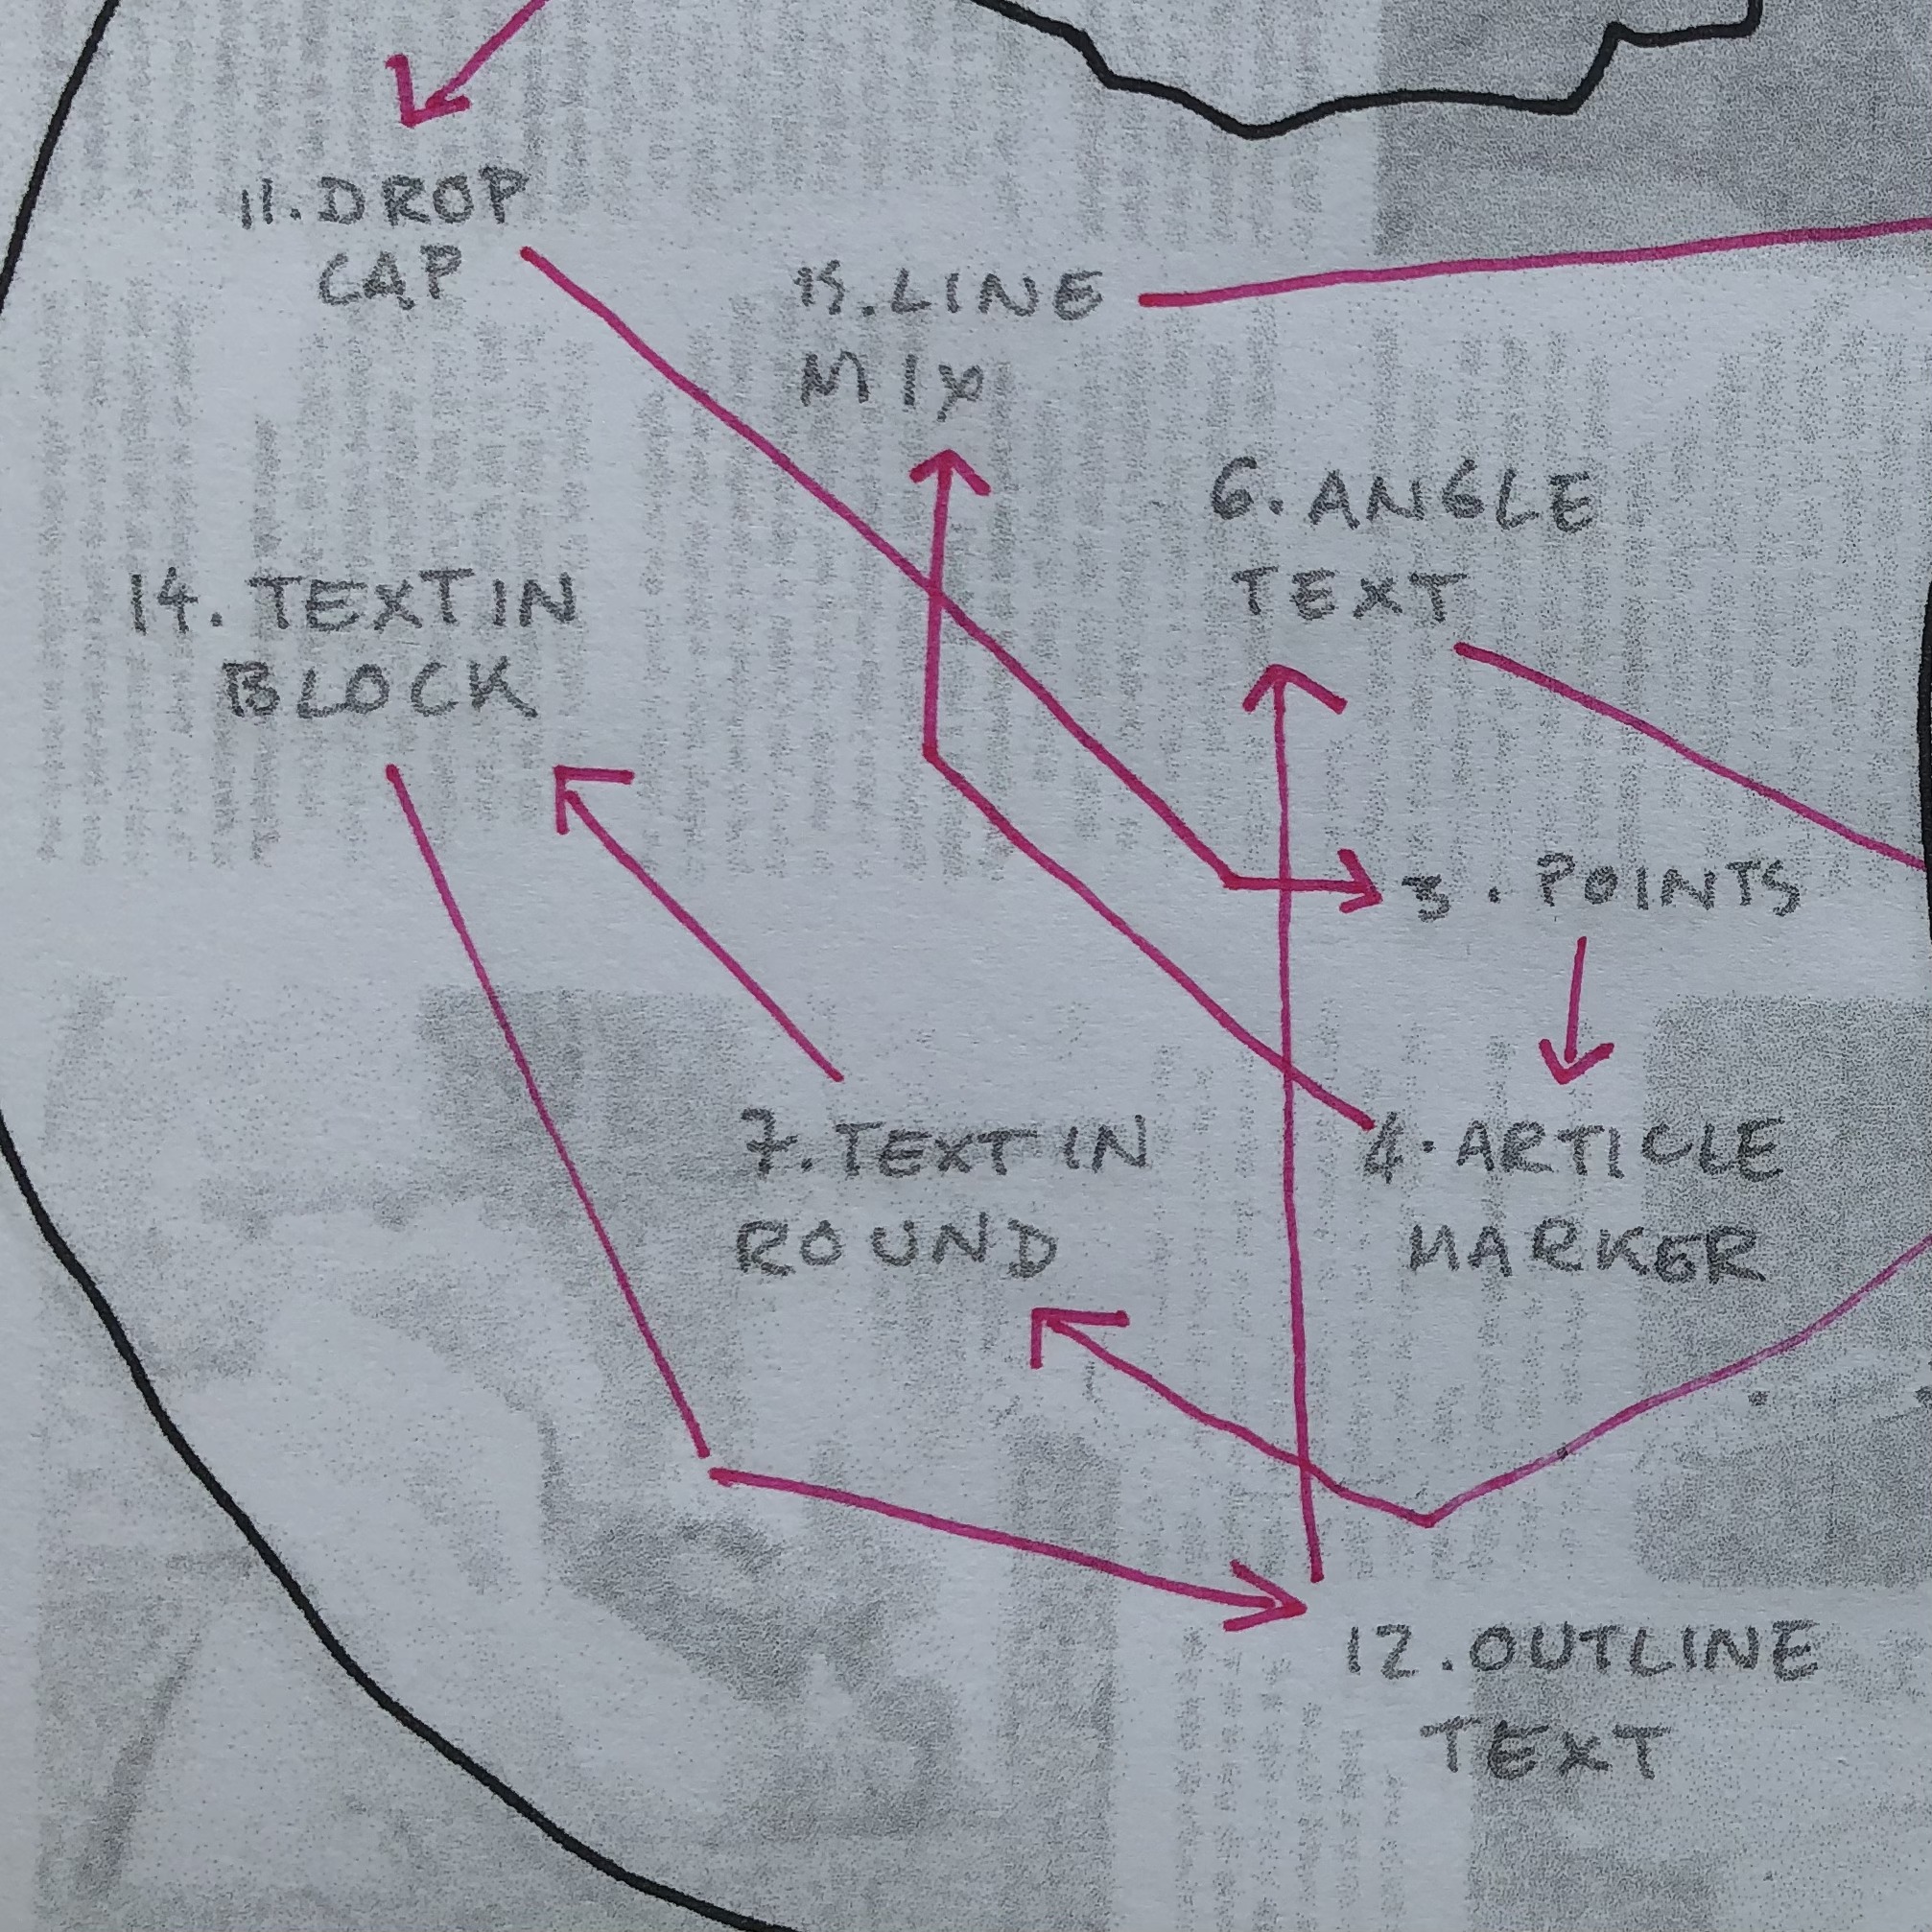 11. DROP
CAP
15. LINE
MIX
6. ANGLE
TEXT
14. TEXT IN
BLOCK
3. POINTS
7. TEXT IN
ROUND
4. ARTICLE
MARKER
12. OUTLINE
TEXT